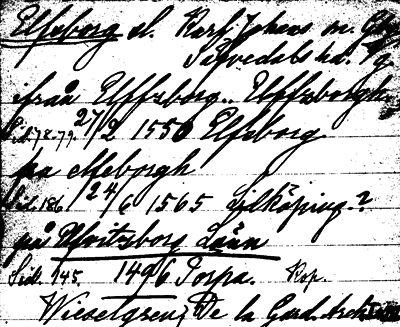 Elfsborg el. Karl Johans m. Gbg
Sävedals hd. Vg
ifrån Elffzborg.. Elffzborgh.
Sid. 78-79. 27/2 1550 Elfsborg
pa elfeborgh
Sid. 186 24/6 1565 Lidköping?
på Elffitzborg Länn
Sid. 145. 1496 Torpa. Kop.
Wieselgren: De la Gard. Arch.